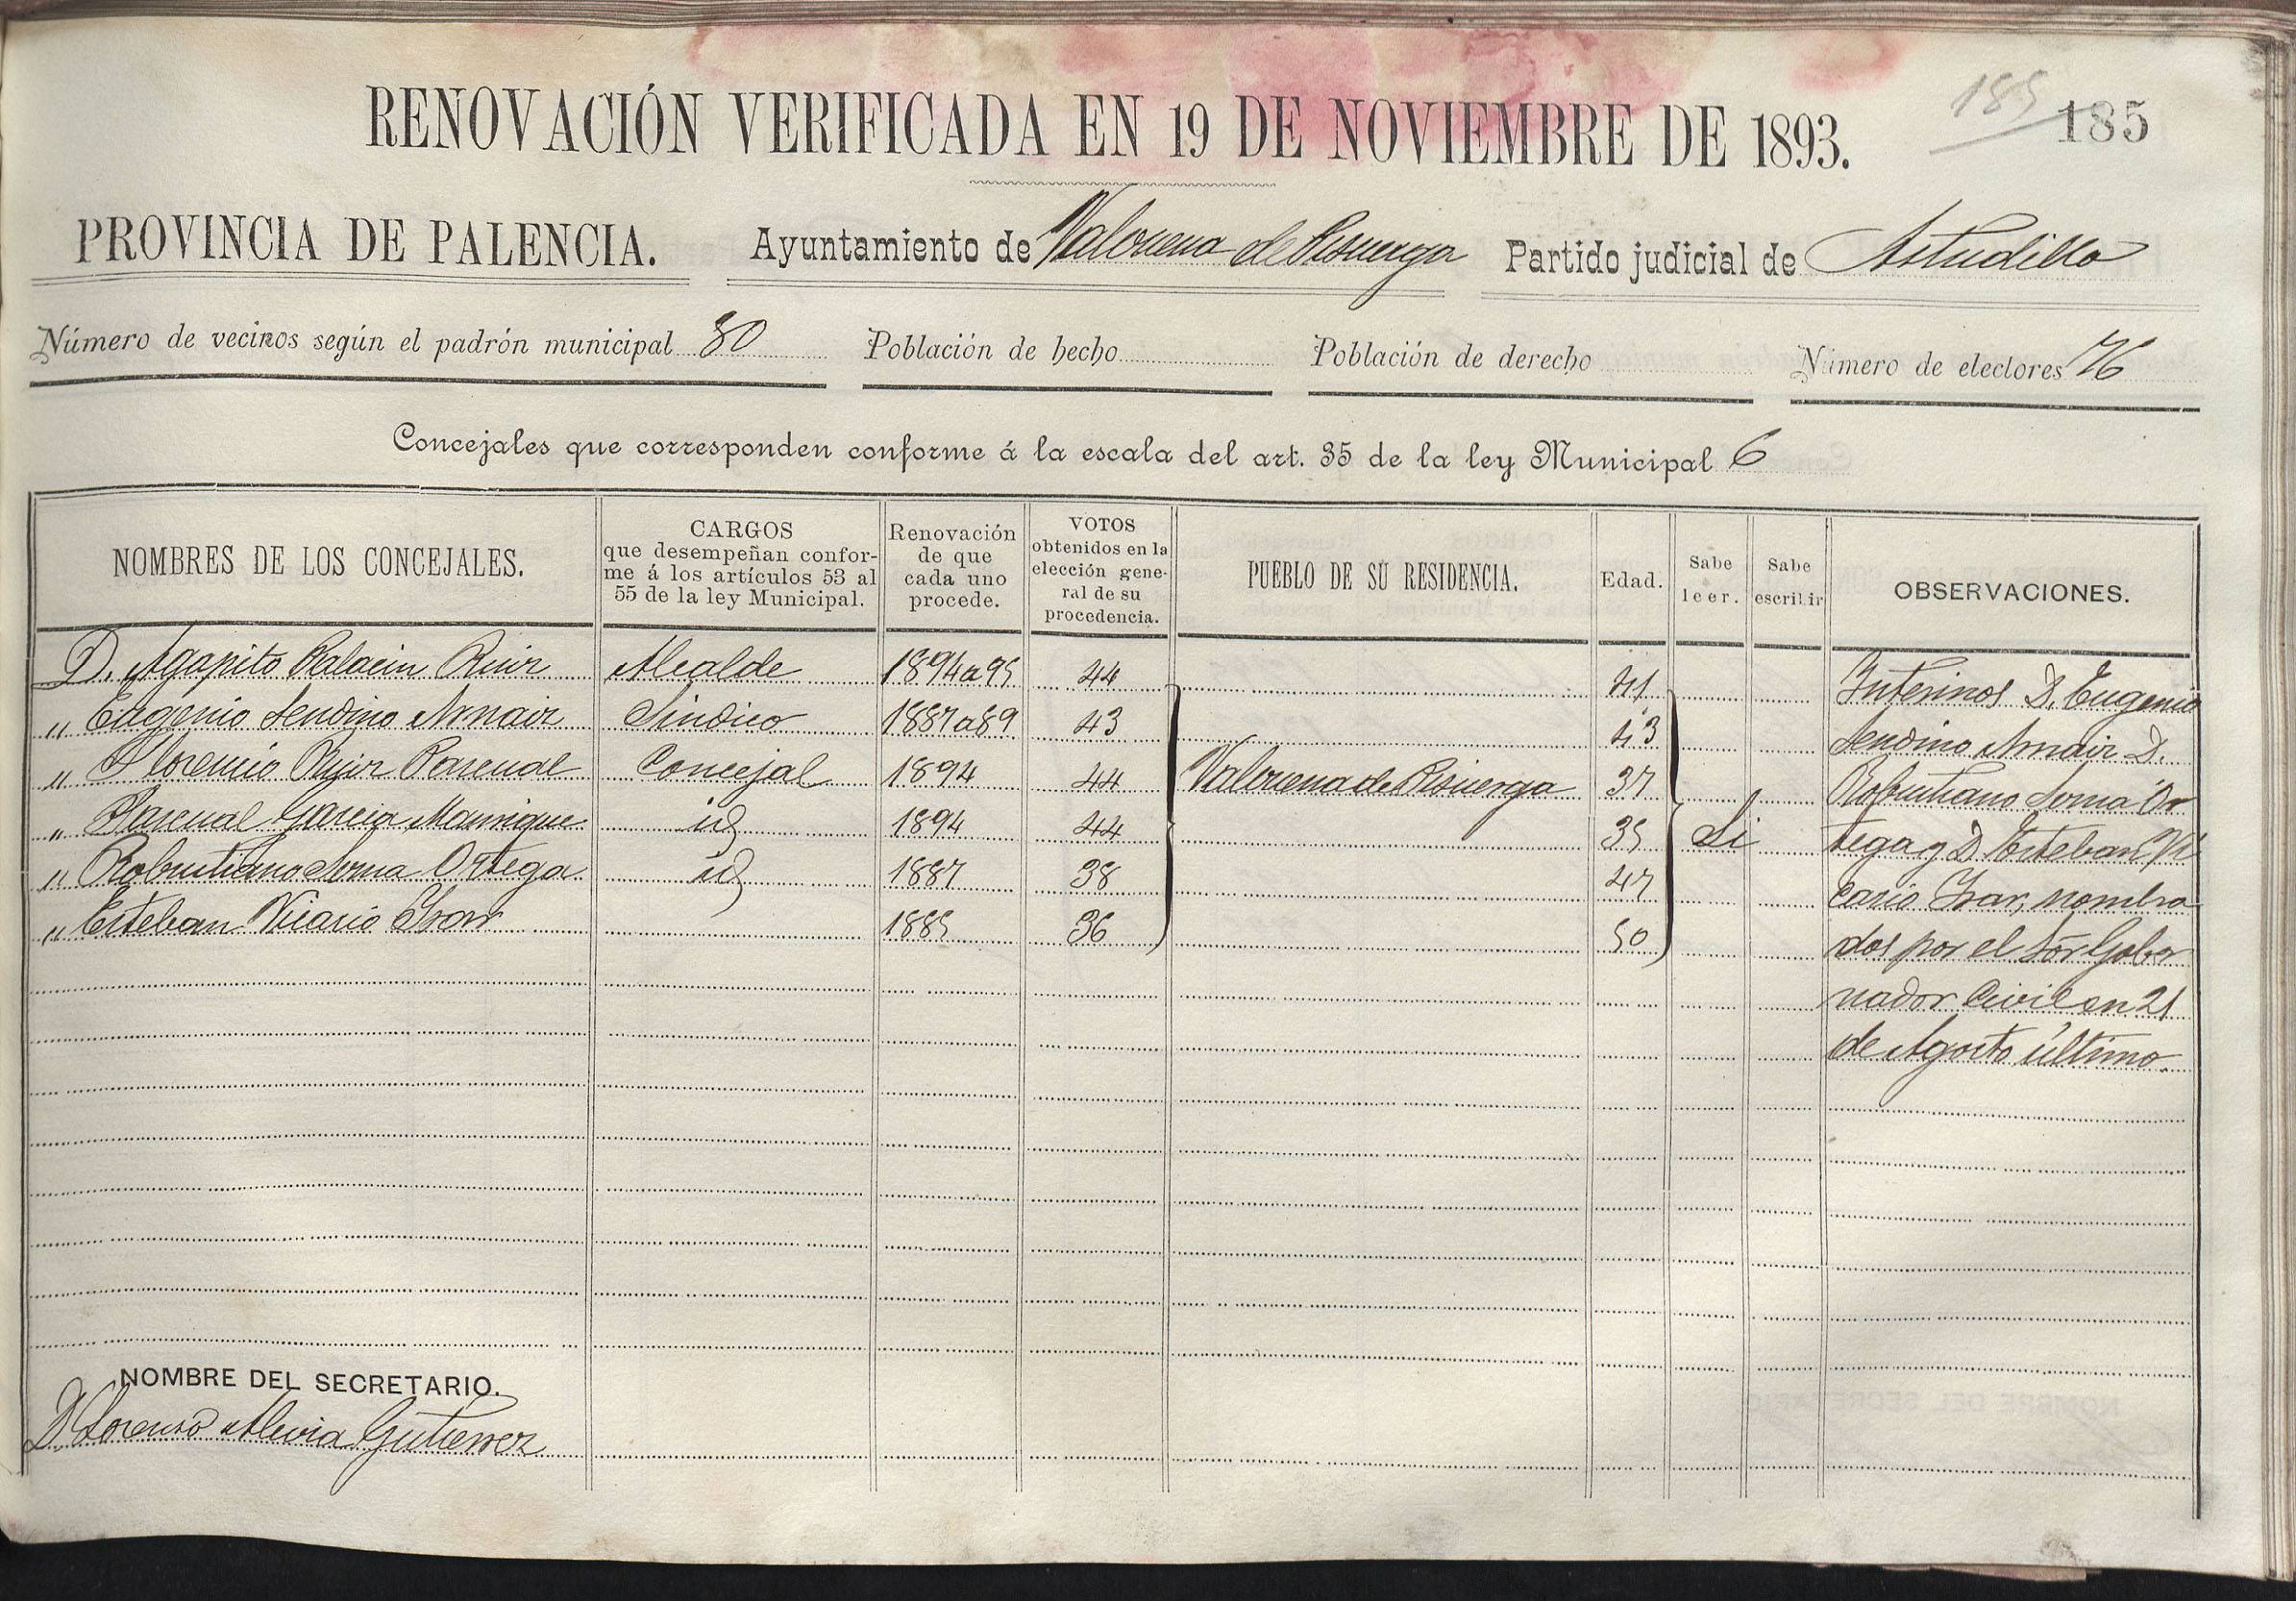 185 185
RENOVACIÓN VERIFICADA EN 19 DE NOVIEMBRE DE 1893.
PROVINCIA DE PALENCIA. Ayuntamiento de Valbuena de Pisuerga Partido judicial de Astudillo
Número de vecinos según el padrón municipal 80 Población de hecho Población de derecho Número de electores 76
Concejales que corresponden conforme á la escala del art. 35 de la ley Municipal 6
NOMBRES DE LOS CONCEJALES.
CARGOS
que desempeñan confor-
me á los artículos 53 al
55 de la ley Municipal.
Renovación
de que
cada uno
procede.
VOTOS
obtenidos en la
elección gene-
ral de su
procedencia.
PUEBLO DE SU RESIDENCIA.
Edad.
Sabe
leer.
Sabe
escribir
OBSERVACIONES.
D. Agapito Palacin Ruiz Alcalde 1894 a 95 44 41
„ Eugenio Sendino Arnaiz Sindico 1887 a 89 43 43
„ Florencio Ruiz Pascual Concejal 1894 44 Valbuena de Pisuerga 37
„ Pascual Garcia Manrique id 1894 44 35 Si
„ Robustiano Soma Ortega id 1887 38 47
„ Esteban Vicario Ibar 1885 36 50
Interinos D. Eugenio
Sendino Arnaiz D.
Robustiano Soma Or
tega y D Esteban Vi
cario Ibar, nombra
dos por el Sor Gober
nador Civil en 21
de Agosto último.
NOMBRE DEL SECRETARIO.
D. Lorenzo Alevia Gutierrez